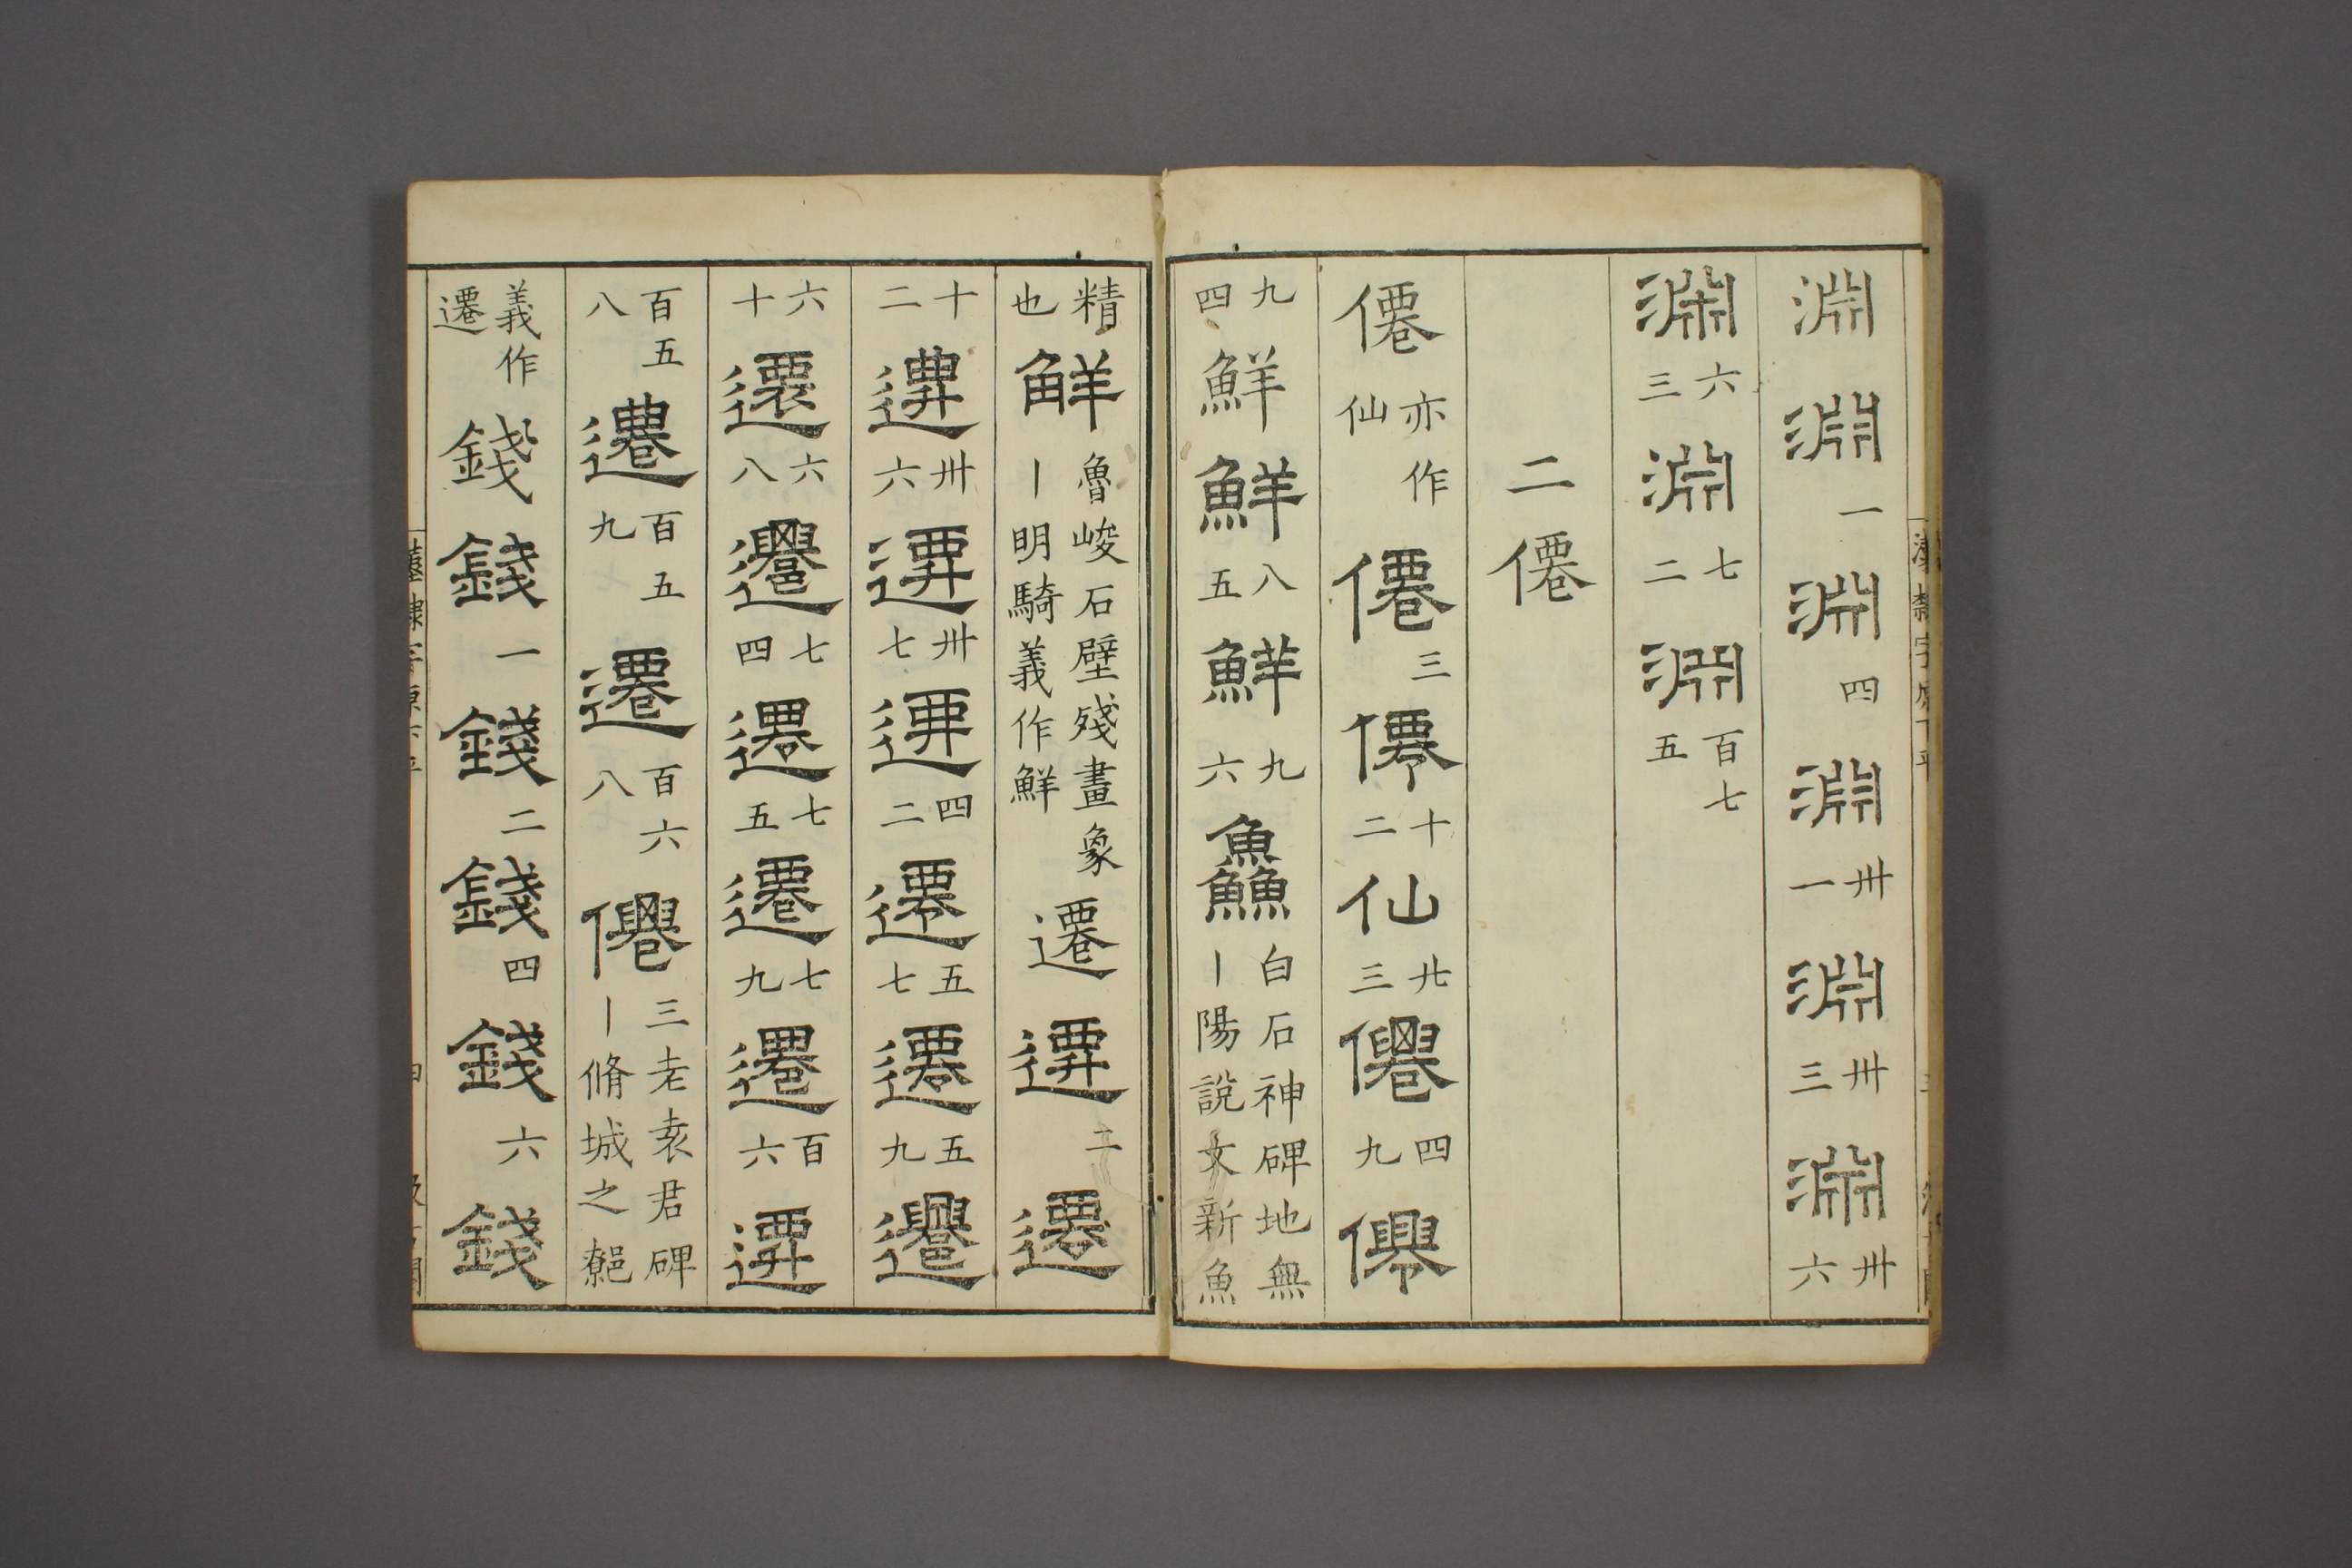 淵 淵 一 淵 四 淵 卅一 淵 卅三 淵 卅六
淵 六三 淵 七二 淵 百七五
二僊
僊 亦作仙 僊 三 僊 十二 仙 廿三 僊 四九 僊
九四 鮮 鮮 八五 鮮 九六 鱻 白石神碑地無丨陽說文新魚
精也 鮮 魯峻石壁殘畫象丨明騎義作鮮 遷 遷 二 遷
十二 遷 卅六 遷 卅七 遷 四二 遷 五七 遷 五九 遷
六十 遷 六八 遷 七四 遷 七五 遷 七九 遷 百六 遷
百五八 遷 百五九 遷 百六八 僊 三老袁君碑丨脩城之㲋
義作遷 錢 錢 一 錢 二 錢 四 錢 六 錢